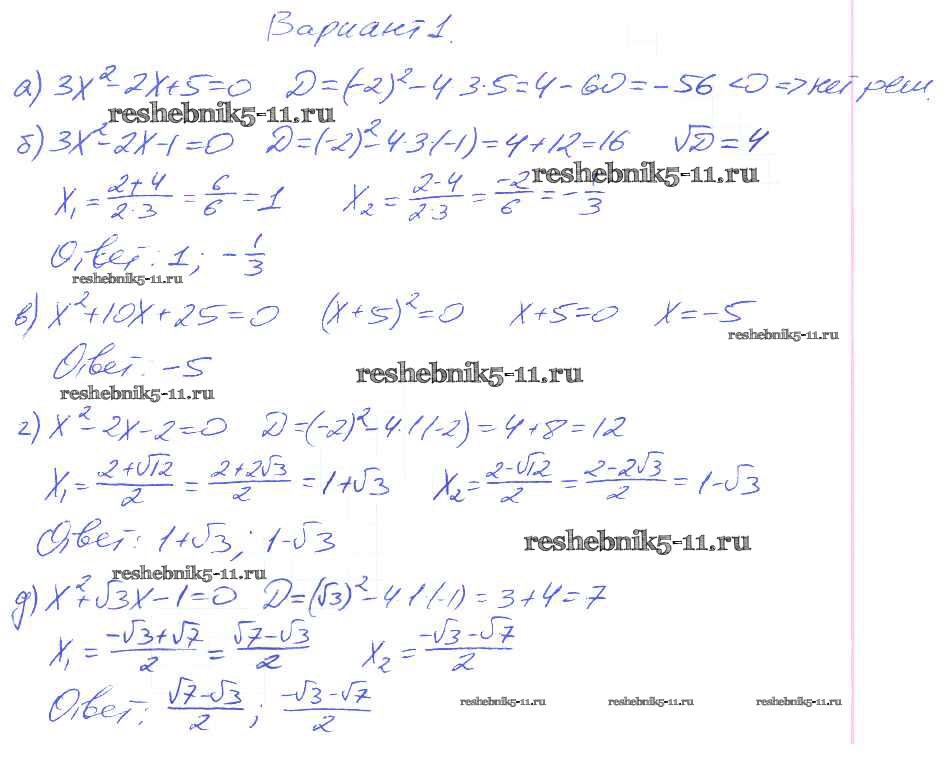 Вариант 1.
а) 3x² - 2x + 5 = 0 D = (-2)² - 4·3·5 = 4 - 60 = -56 < 0 => нет реш.
reshebnik5-11.ru
б) 3x² - 2x - 1 = 0 D = (-2)² - 4·3·(-1) = 4 + 12 = 16 √D = 4
reshebnik5-11.ru
x₁ = (2+4)/(2·3) = 6/6 = 1 x₂ = (2-4)/(2·3) = -2/6 = -1/3
Ответ: 1; -1/3
reshebnik5-11.ru
в) x² + 10x + 25 = 0 (x+5)² = 0 x+5 = 0 x = -5
reshebnik5-11.ru
Ответ: -5
reshebnik5-11.ru
reshebnik5-11.ru
г) x² - 2x - 2 = 0 D = (-2)² - 4·1·(-2) = 4 + 8 = 12
x₁ = (2+√12)/2 = (2+2√3)/2 = 1+√3 x₂ = (2-√12)/2 = (2-2√3)/2 = 1-√3
Ответ: 1+√3; 1-√3
reshebnik5-11.ru
reshebnik5-11.ru
д) x² + √3x - 1 = 0 D = (√3)² - 4·1·(-1) = 3 + 4 = 7
x₁ = (-√3+√7)/2 = (√7-√3)/2 x₂ = (-√3-√7)/2
Ответ: (√7-√3)/2; (-√3-√7)/2
reshebnik5-11.ru reshebnik5-11.ru reshebnik5-11.ru